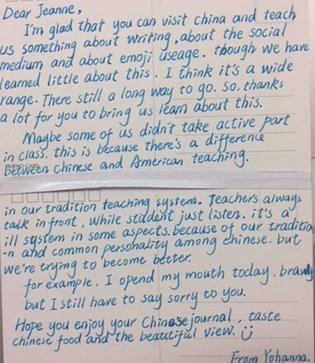 Dear Jeanne,
I'm glad that you can visit china and teach
us something about writing, about the social
medium and about emoji useage. though we have
learned little about this. I think it's a wide
range. There still a long way to go. So, thanks
a lot for you to bring us learn about this.
Maybe some of us didn't take active part
in class. this is because there's a difference
between chinese and American teaching.
in our tradition teaching system. Teachers always
talk in front, while student just listen. it's a
ill system in some aspects. because of our traditio
-n and common personality among chinese. but
we're trying to become better.
for example. I opend my mouth today. bravly
but I still have to say sorry to you.
Hope you enjoy your Chinese journal, taste
chinese food and the beautiful view. ü
From Yohanna.